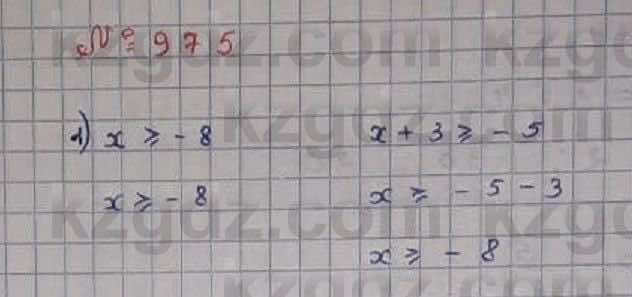 № 975
1) x ≥ -8
x ≥ -8
x + 3 ≥ -5
x ≥ -5 - 3
x ≥ -8
kzgdz.com kzg
kzgdz.com
kzgdz.com kzg